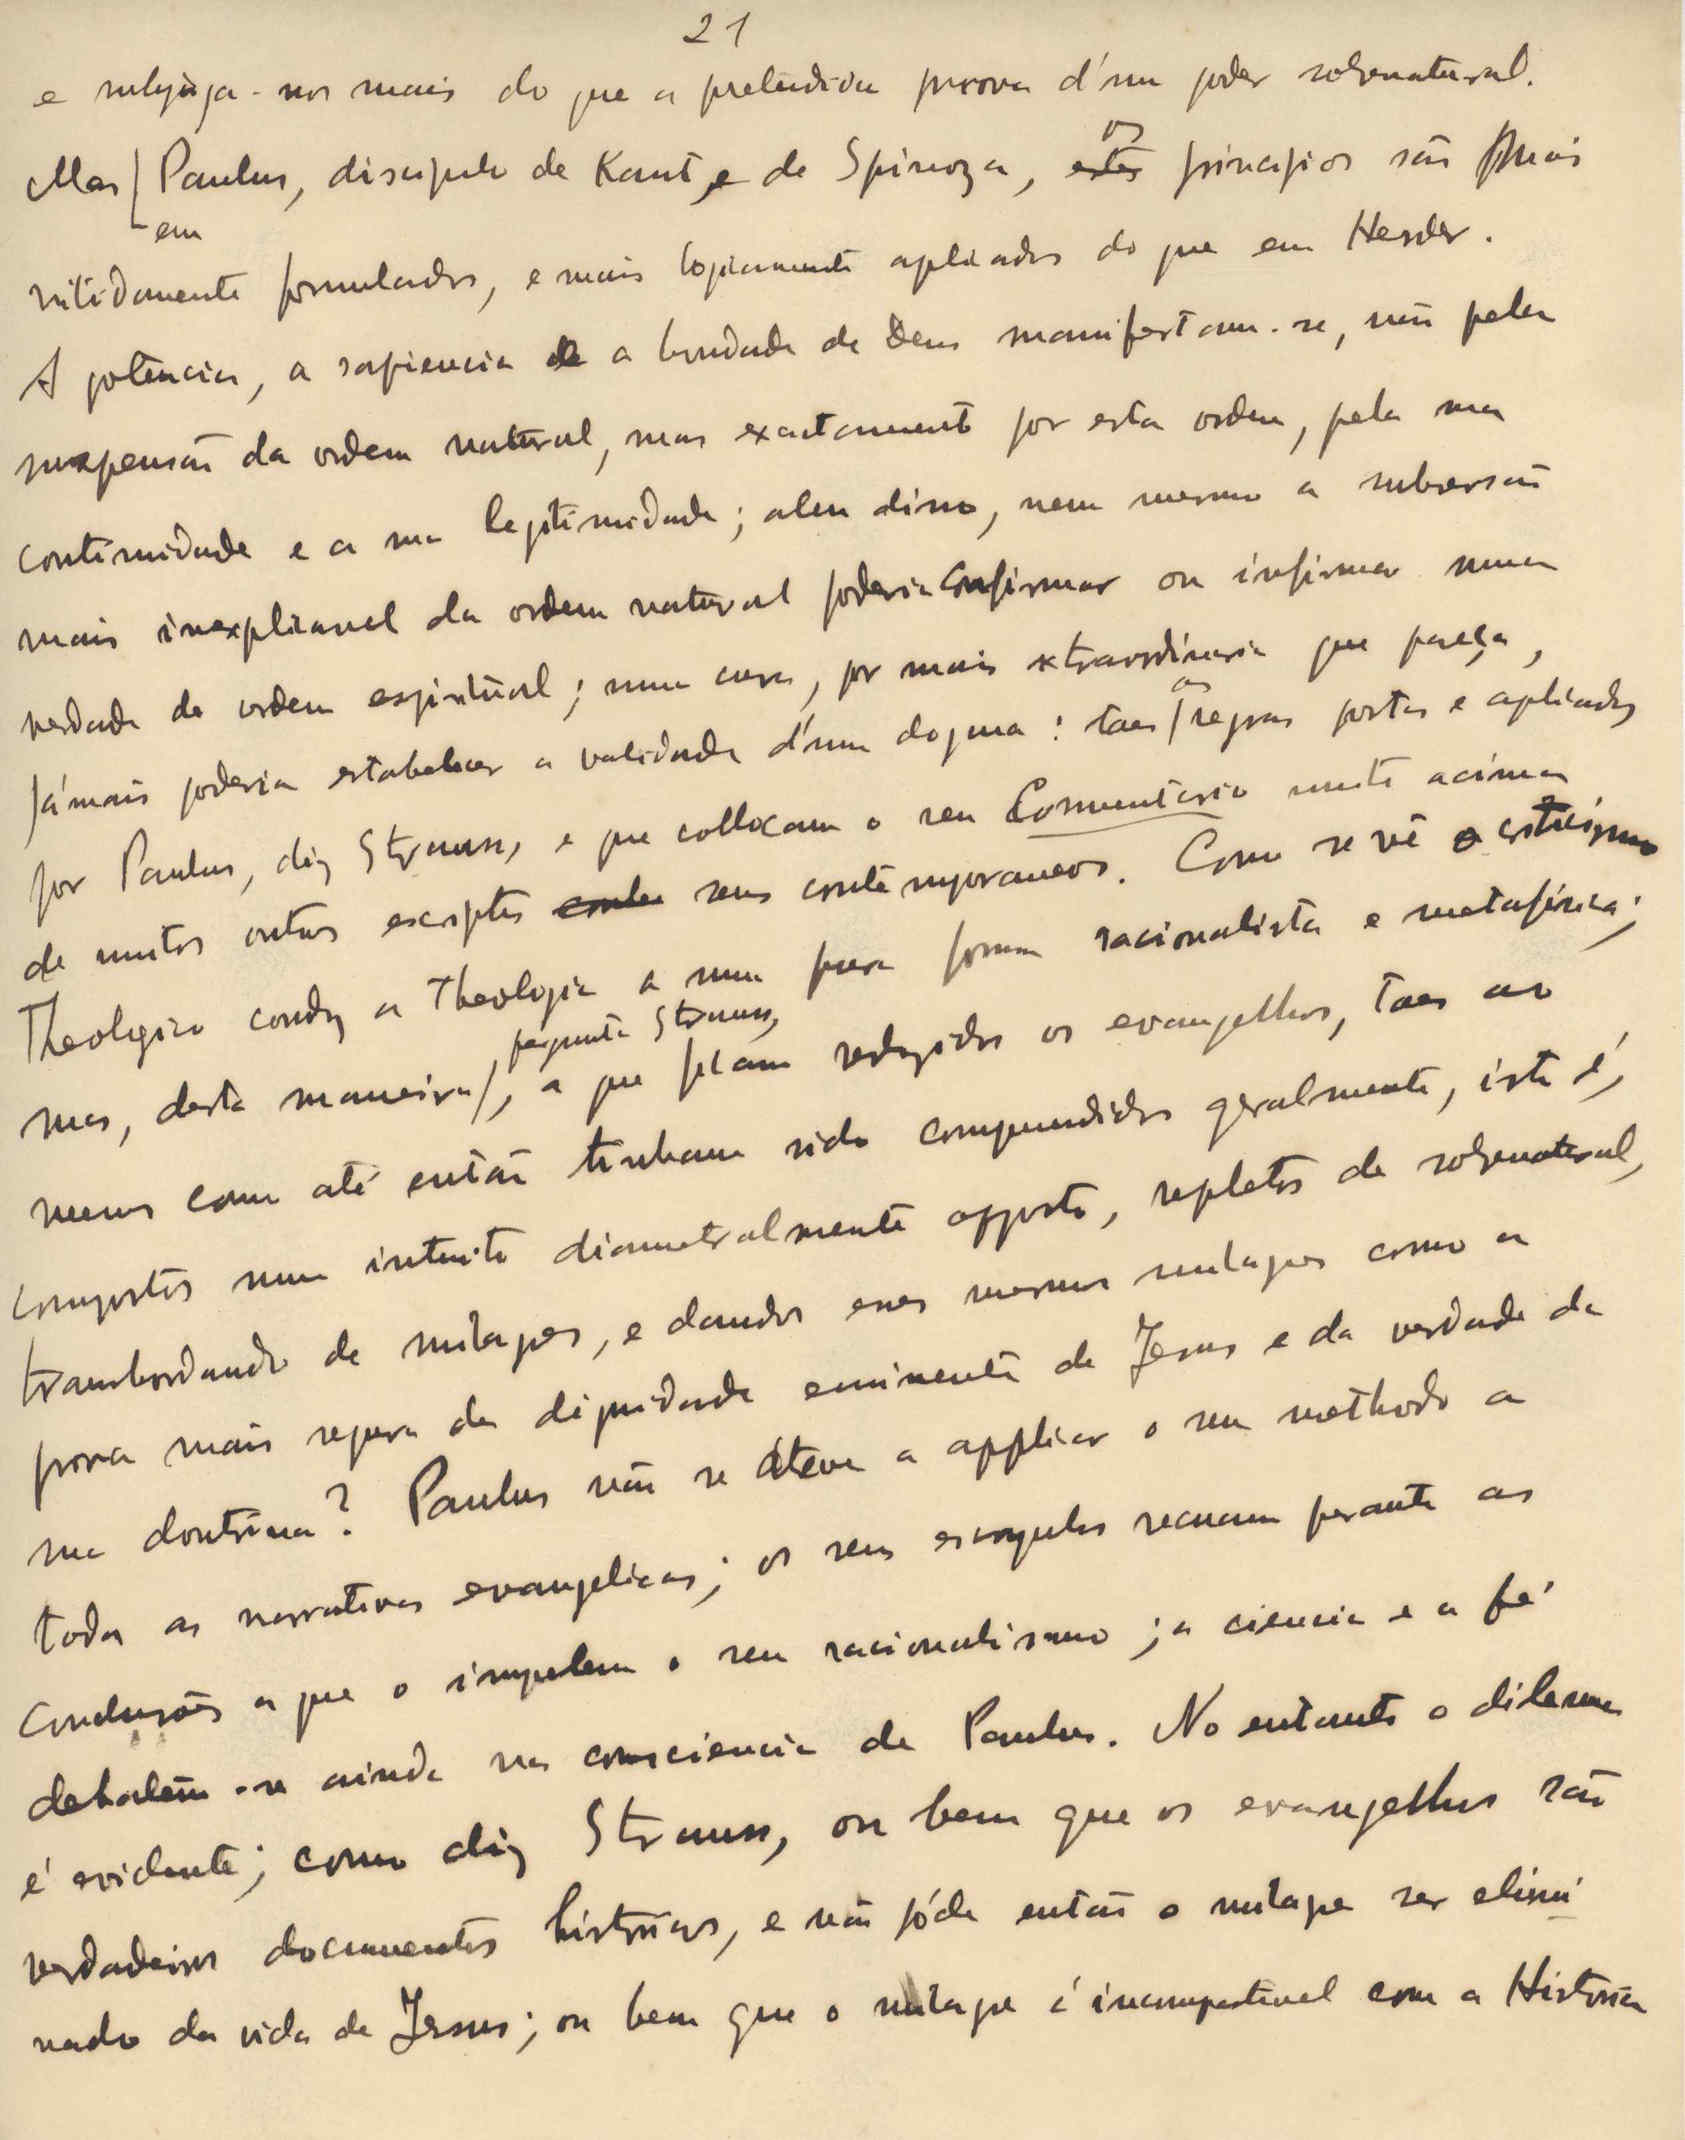 21
e subjuga-nos mais do que a pretendida prova d'um poder sobrenatural.
os
Mas Paulus, discipulo de Kant e de Spinoza, estes principios são mais
em
nitidamente formulados, e mais logicamente aplicados do que em Herder.
A potencia, a sapiencia e a bondade de Deus manifestam-se, não pela
suspensão da ordem natural, mas exactamente por esta ordem, pela sua
continuidade e a sua legitimidade; alem disso, nem mesmo a subversão
mais inexplicavel da ordem natural poderia confirmar ou infirmar uma
verdade de ordem espiritual; uma cura, por mais extraordinaria que pareça,
jámais poderia estabelecer a validade d'um dogma: taes regras postas e aplicadas
as
por Paulus, diz Strauss, e que collocam o seu Commentario muito acima
de muitos outros escriptos seus contemporaneos. Como se vê o criticismo
Theologico conduz a Theologia a uma pura forma racionalista e metafisica;
pergunta Strauss,
mas, desta maneira, a que ficam reduzidos os evangelhos, taes ao
menos como até então tinham sido comprendidos geralmente, isto é,
compostos num intuito diametralmente opposto, repletos de sobrenatural,
transbordando de milagres, e dando esses mesmos milagres como a
prova mais segura da dignidade eminente de Jesus e da verdade da
sua doutrina? Paulus não se ateve a applicar o seu methodo a
todas as narrativas evangelicas; os seus escrupulos recuam perante as
conclusões a que o impelem o seu racionalismo; a ciencia e a fé
debatem-se ainda na consciencia de Paulus. No entanto o dilema
é evidente; como diz Strauss, ou bem que os evangelhos são
verdadeiros documentos historicos, e não póde então o milagre ser elimi
nado da vida de Jesus; ou bem que o milagre é incompativel com a Historia